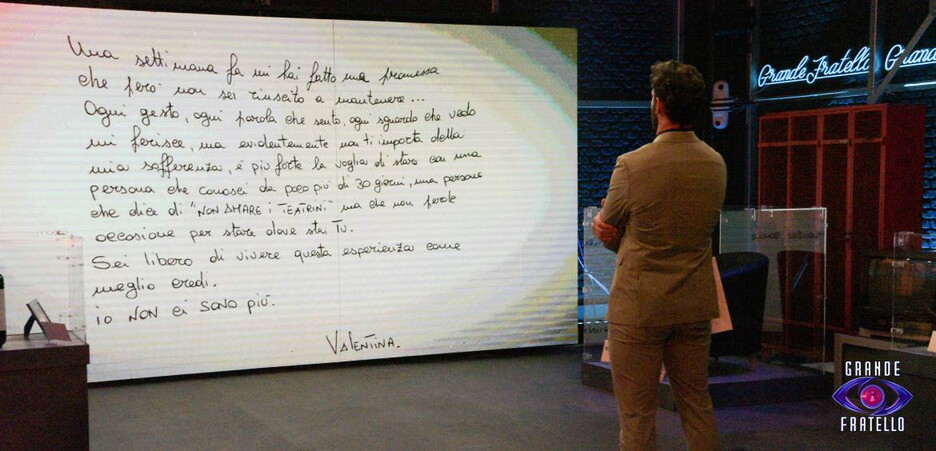 Una settimana fa mi hai fatto una promessa
che però non sei riuscito a mantenere...
Ogni gesto, ogni parola che sento, ogni sguardo che vedo
mi ferisce, ma evidentemente non ti importa della
mia sofferenza, è più forte la voglia di stare con una
persona che conosci da poco più di 30 giorni, una persona
che dice di "NON AMARE I TEATRINI" ma che non perde
occasione per stare dove stai TU.
Sei libero di vivere questa esperienza come
meglio credi.
io NON ci SONO più.
VALENTINA.
Grande Fratello Grande
GRANDE
FRATELLO